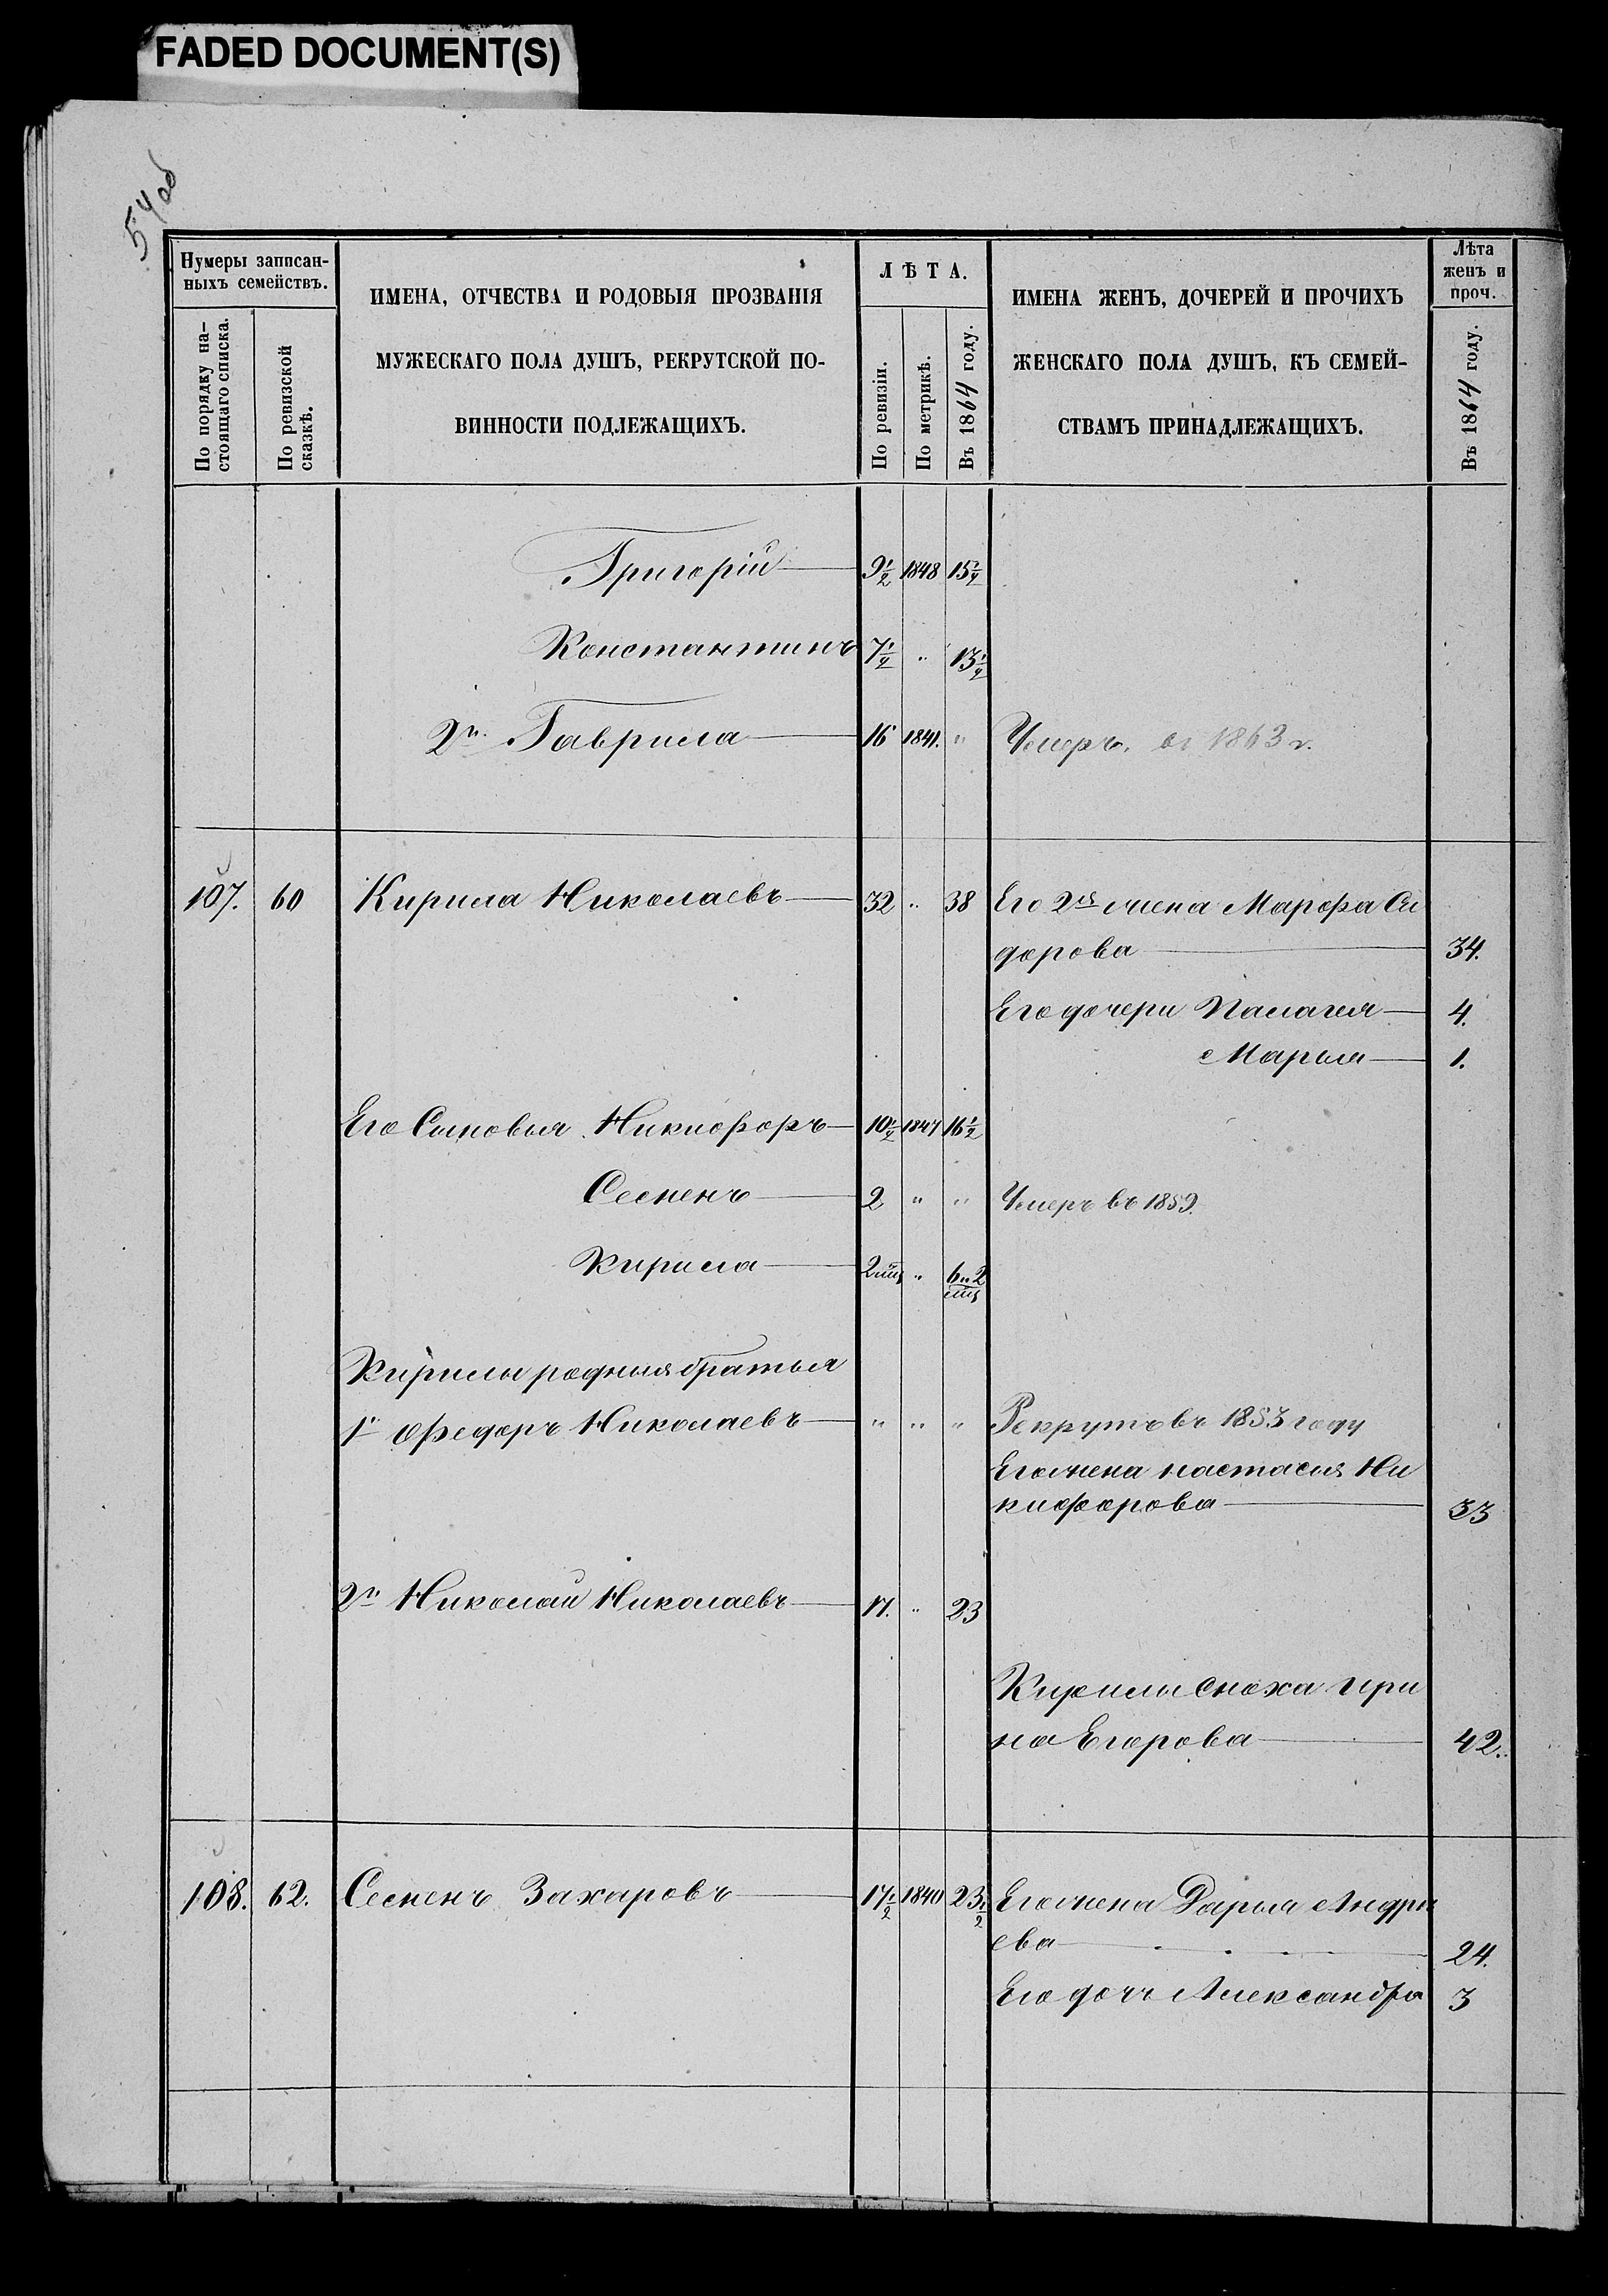 FADED DOCUMENT(S)
54 об
Нумеры записан-
ныхъ семействъ.
По порядку на-
стоящаго списка.
По ревизской
сказкѣ.
ИМЕНА, ОТЧЕСТВА И РОДОВЫЯ ПРОЗВАНІЯ
МУЖЕСКАГО ПОЛА ДУШЪ, РЕКРУТСКОЙ ПО-
ВИННОСТИ ПОДЛЕЖАЩИХЪ.
ЛѢТА.
По ревизіи.
По метрикѣ.
Въ 1864 году.
ИМЕНА ЖЕНЪ, ДОЧЕРЕЙ И ПРОЧИХЪ
ЖЕНСКАГО ПОЛА ДУШЪ, КЪ СЕМЕЙ-
СТВАМЪ ПРИНАДЛЕЖАЩИХЪ.
Лѣта
женъ и
проч.
Въ 1864 году.
Григорій 9½ 1848 15½
Константинъ 7½ " 13½
2й Гаврила 16 1841. " Умеръ. въ 1863 г.
107. 60 Кирила Николаевъ 32 " 38 Его 2я жена Марфа Си
дорова 34.
Его дочери Палагея 4.
Марья 1.
Его Сыновья Никифоръ 10½ 1847 16½
Семенъ 2 " " Умеръ въ 1859.
Кирила 2 мц " 6 и 2
мц
Кирилы родныя братья
1й Федоръ Николаевъ " " " Рекрутъ въ 1853 году
Его жена настасья Ни
кифорова 33
2й Николай Николаевъ 17. " 23
Кирилы сноха Ири
на Егорова 42.
108. 62. Семенъ Захаровъ 17½ 1840 23½ Его жена Дарья Андри
ева 24.
Его дочь Александра 3